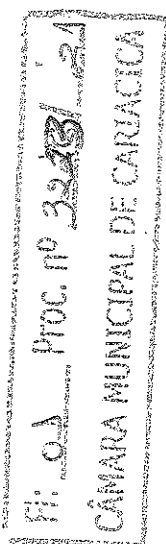 Fl: 01 Proc. nº
CÂMARA MUNICIPAL DE CARIACICA